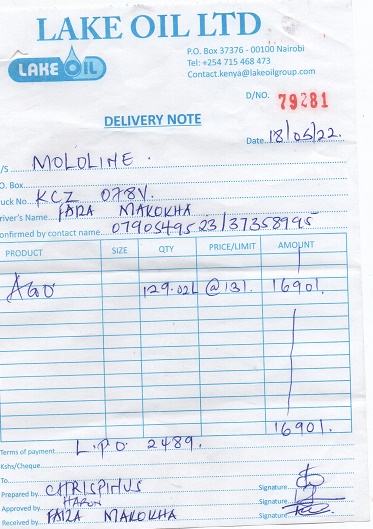 LAKE OIL LTD
P.O. Box 37376 - 00100 Nairobi
Tel: +254 715 468 473
Contact.kenya@lakeoilgroup.com
LAKE OIL
D/NO. 79281
DELIVERY NOTE
Date 18/05/22.
/S MOLOLINE.
O. Box
uck No. KCZ 078V.
river's Name FAIZA MAKOKHA
onfirmed by contact name 0790549523/37358995
PRODUCT SIZE QTY PRICE/LIMIT AMOUNT
AGO 129.02L @131. 16901.
16901.
Terms of payment L.P.O 2489.
Kshs/Cheque
To
Prepared by CHRISPINUS Signature
Approved by HARON Signature
Received by FAIZA MAKOKHA Signature